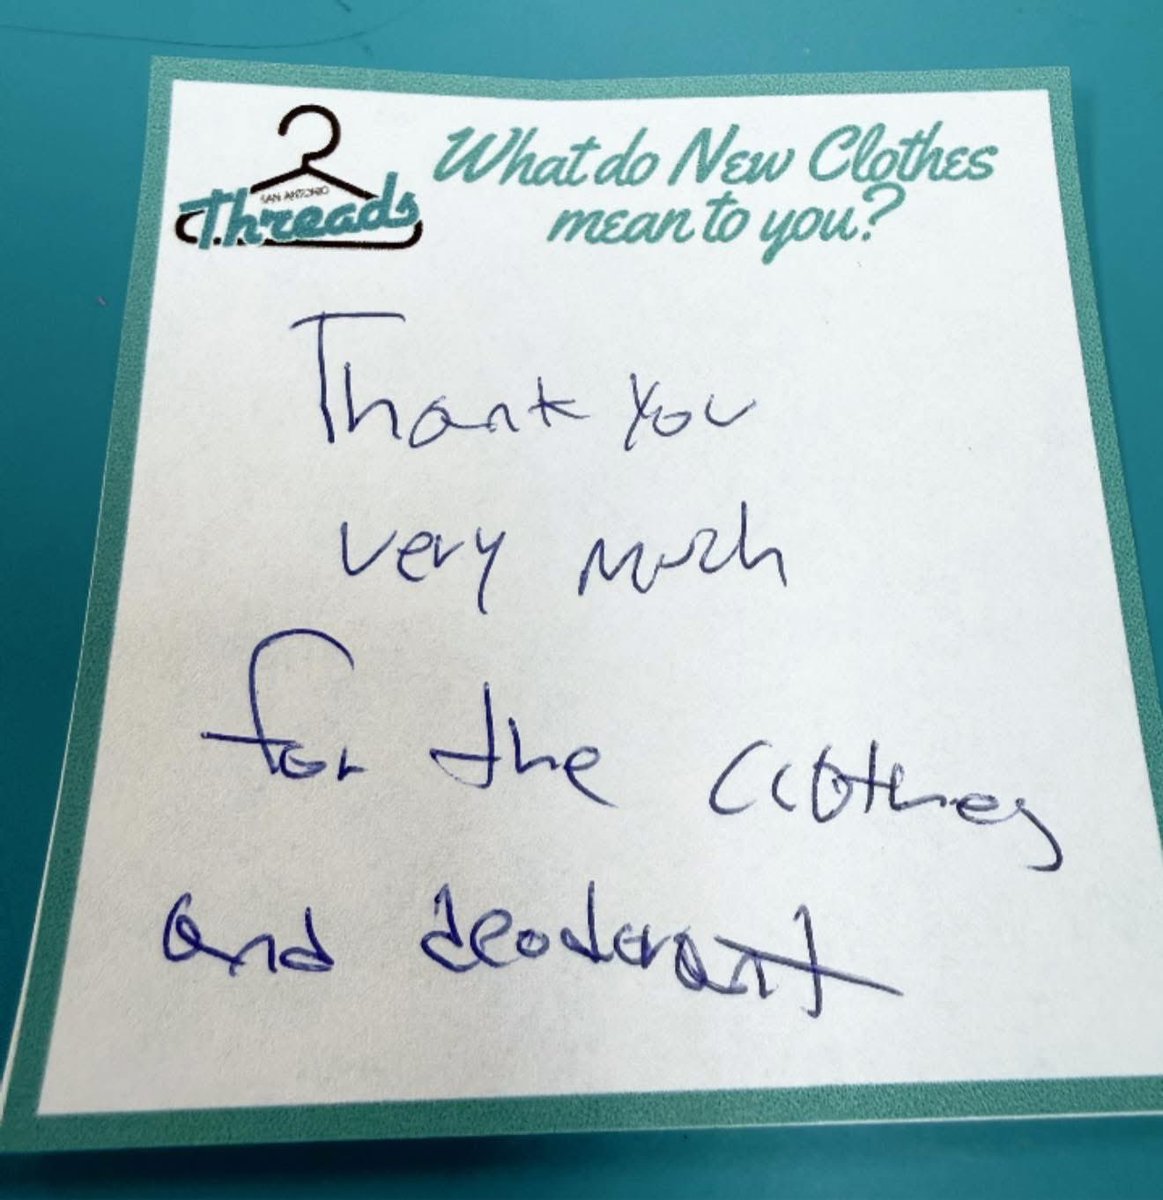 SAN ANTONIO
Threads
What do New Clothes
mean to you?
Thank you
very much
for the clothes
and deodorant